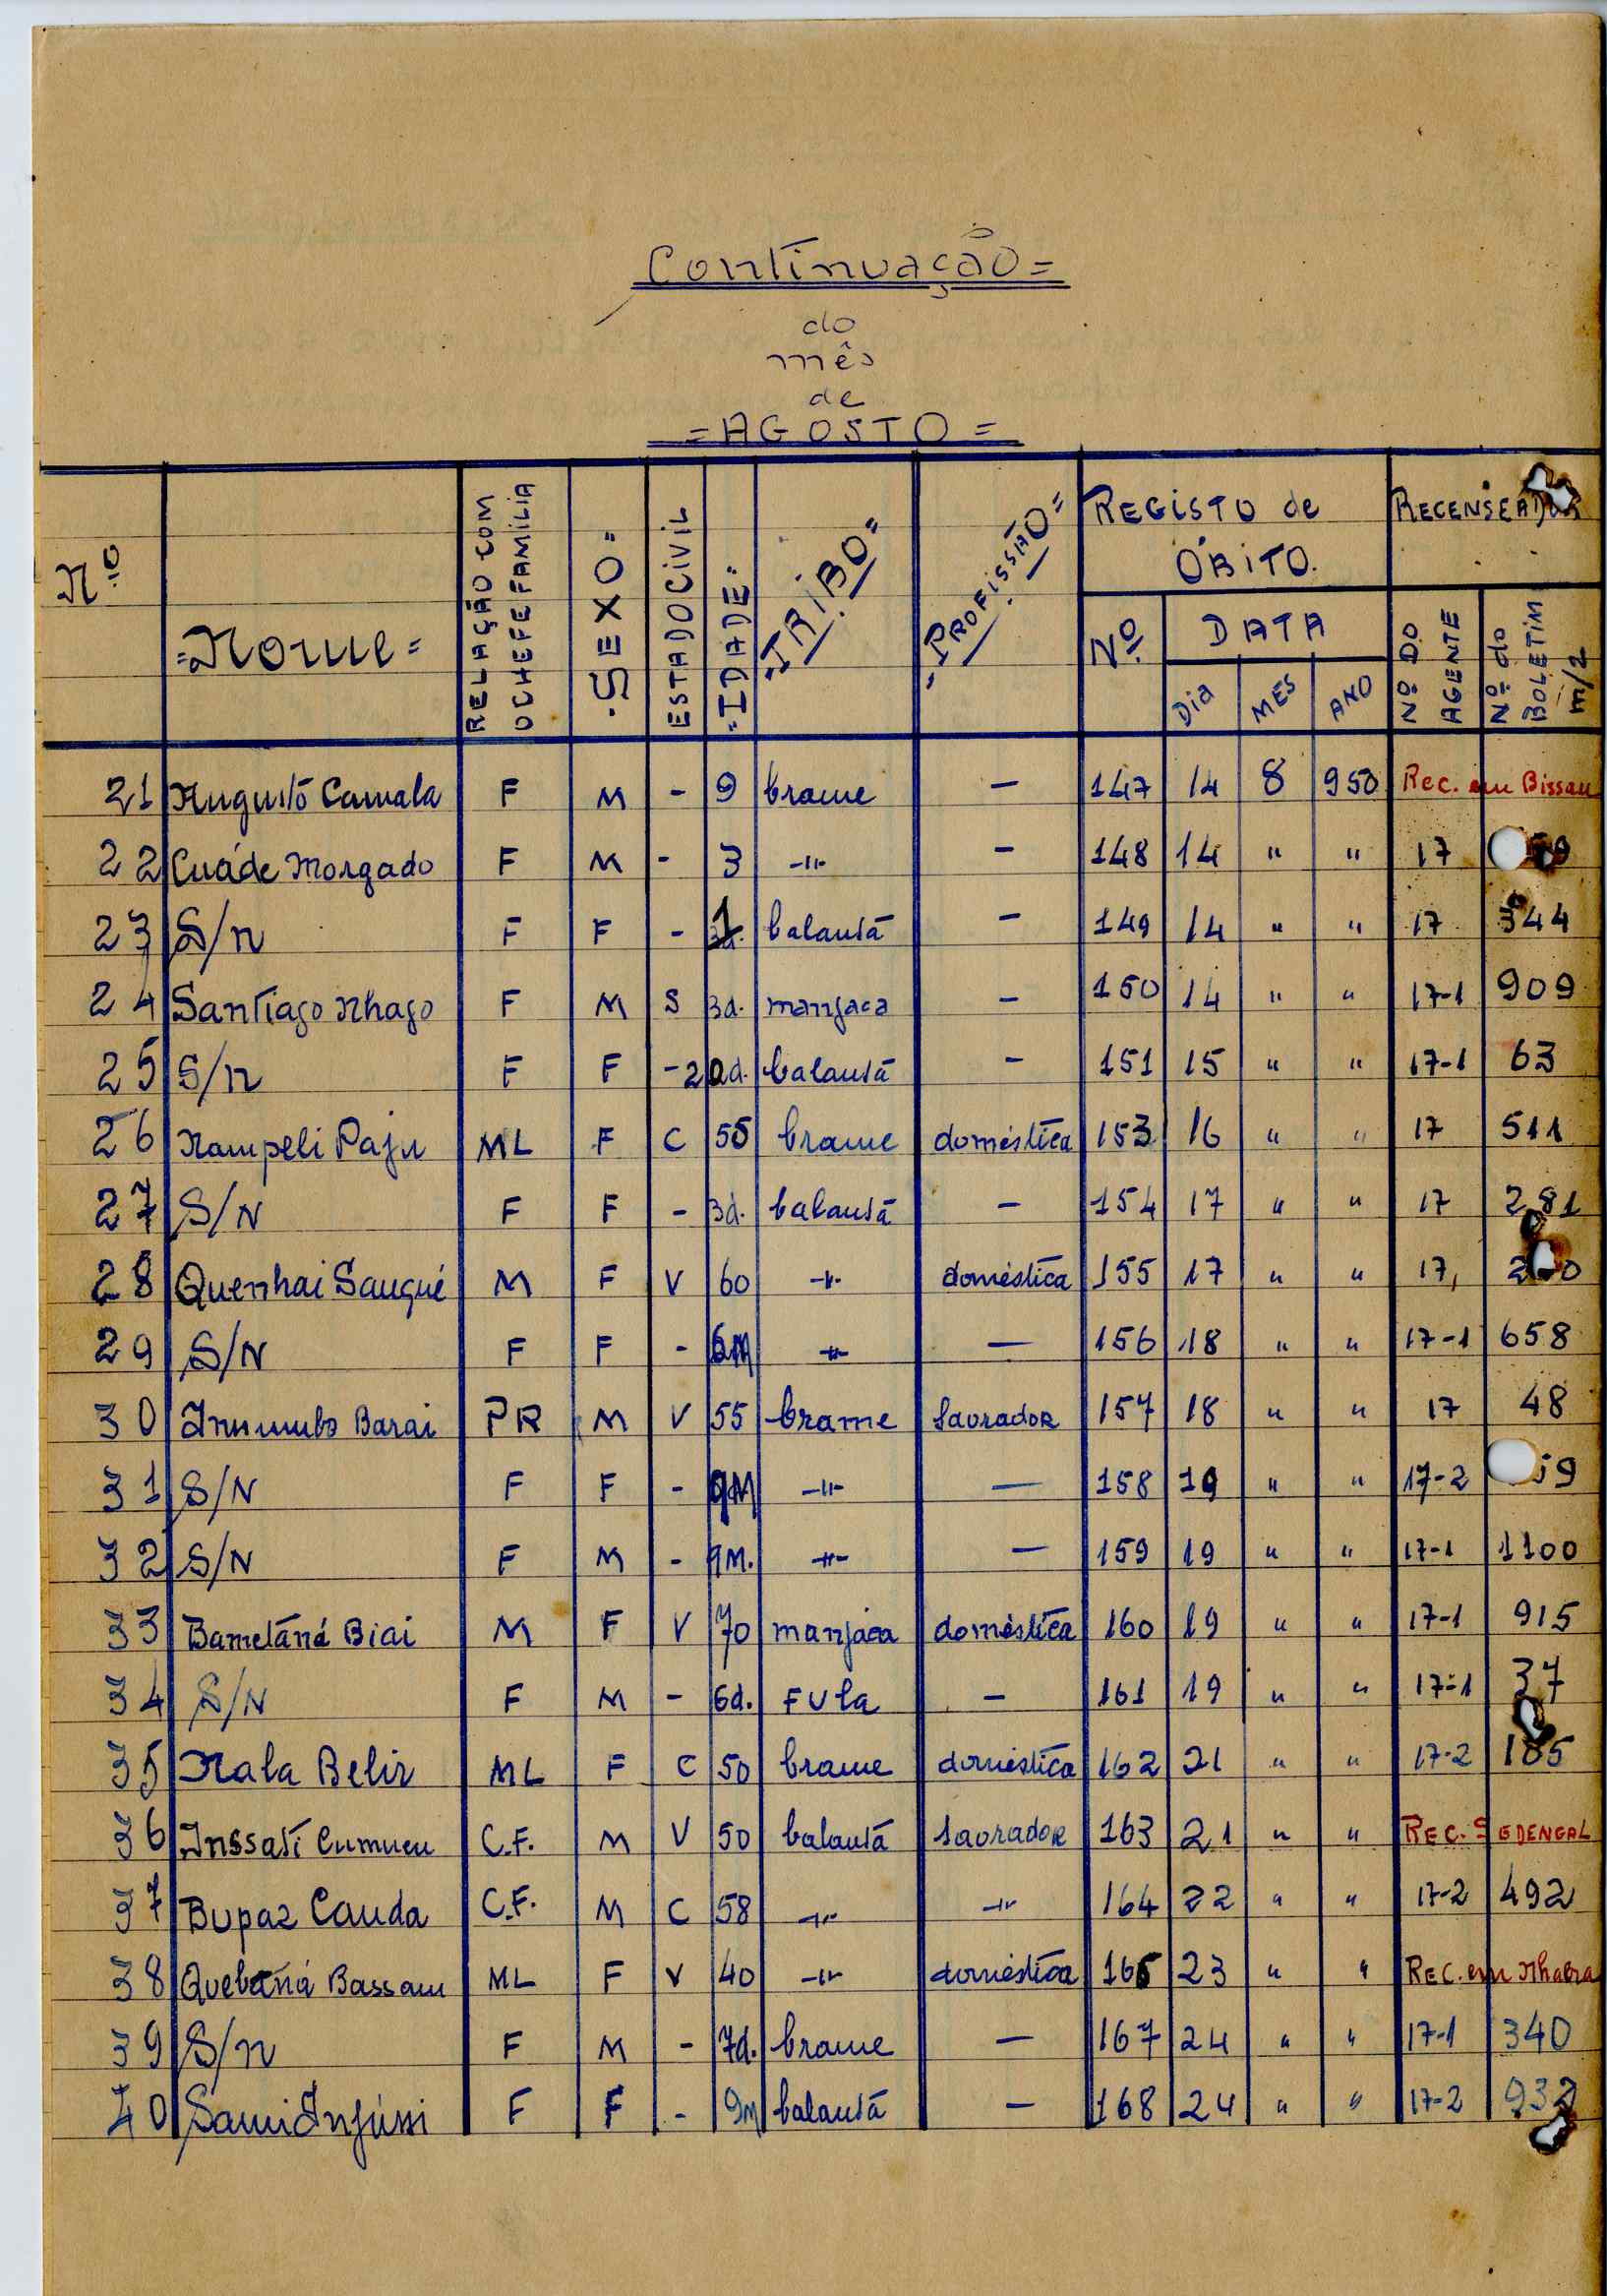 Continuação=
do
mês
de
=AGOSTO=
Nº =Nome= RELAÇÃO COM O CHEFE FAMILIA -SEXO= ESTADO CIVIL =IDADE= =TRIBO= =PROFISSÃO= REGISTO de ÓBITO. RECENSEADOR
Nº DATA Nº DO AGENTE Nº do BOLETIM m/2
Dia MES ANO
21 Augusto Camala F M - 9 brame - 147 14 8 950 Rec. em Bissau
22 Cuáde Morgado F M - 3 -"- - 148 14 " " 17
23 S/n F F - 1 balantã - 149 14 " " 17 344
24 Santiago Nhago F M S 3d. manjaca - 150 14 " " 17-1 909
25 S/n F F - 20d. balantã - 151 15 " " 17-1 63
26 Nampeli Paju ML F C 55 brame doméstica 153 16 " " 17 511
27 S/N F F - 3d. balantã - 154 17 " " 17 281
28 Quenhai Sangué M F V 60 -"- doméstica 155 17 " " 17
29 S/N F F - 6M -"- - 156 18 " " 17-1 658
30 Barai PR M V 55 brame lavrador 157 18 " " 17 48
31 S/N F F - 9M -"- - 158 19 " " 17-2 59
32 S/N F M - 9M. -"- - 159 19 " " 17-1 1100
33 Bametãná Biai M F V 70 manjaca doméstica 160 19 " " 17-1 915
34 S/N F M - 6d. Fula - 161 19 " " 17-1 37
35 Nala Belir ML F C 50 brame doméstica 162 21 " " 17-2 185
36 Inssati Cumucu C.F. M V 50 balantã lavrador 163 21 " " REC. SEDENGAL
37 Bupaz Cauda C.F. M C 58 -"- -"- 164 22 " " 17-2 492
38 Quebãná Bassam ML F V 40 -"- doméstica 166 23 " " REC. em Nhacra
39 S/n F M - 7d. brame - 167 24 " " 17-1 340
40 Sami Injússi F F - 9m balantã - 168 24 " " 17-2 932